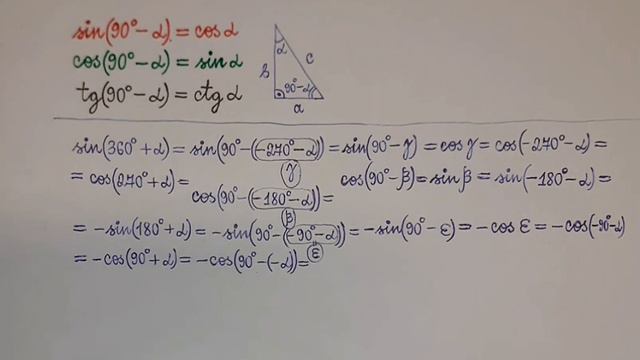 sin(90°-α) = cosα
cos(90°-α) = sinα
tg(90°-α) = ctgα
α
b
c
90°-α
a
sin(360°+α) = sin(90°-(-270°-α)) = sin(90°-γ) = cosγ = cos(-270°-α) =
γ
= cos(270°+α) = cos(90°-(-180°-α)) = cos(90°-β) = sinβ = sin(-180°-α) =
β
= -sin(180°+α) = -sin(90°-(-90°-α)) = -sin(90°-ε) = -cosε = -cos(-90°-α)
ε
= -cos(90°+α) = -cos(90°-(-α)) =